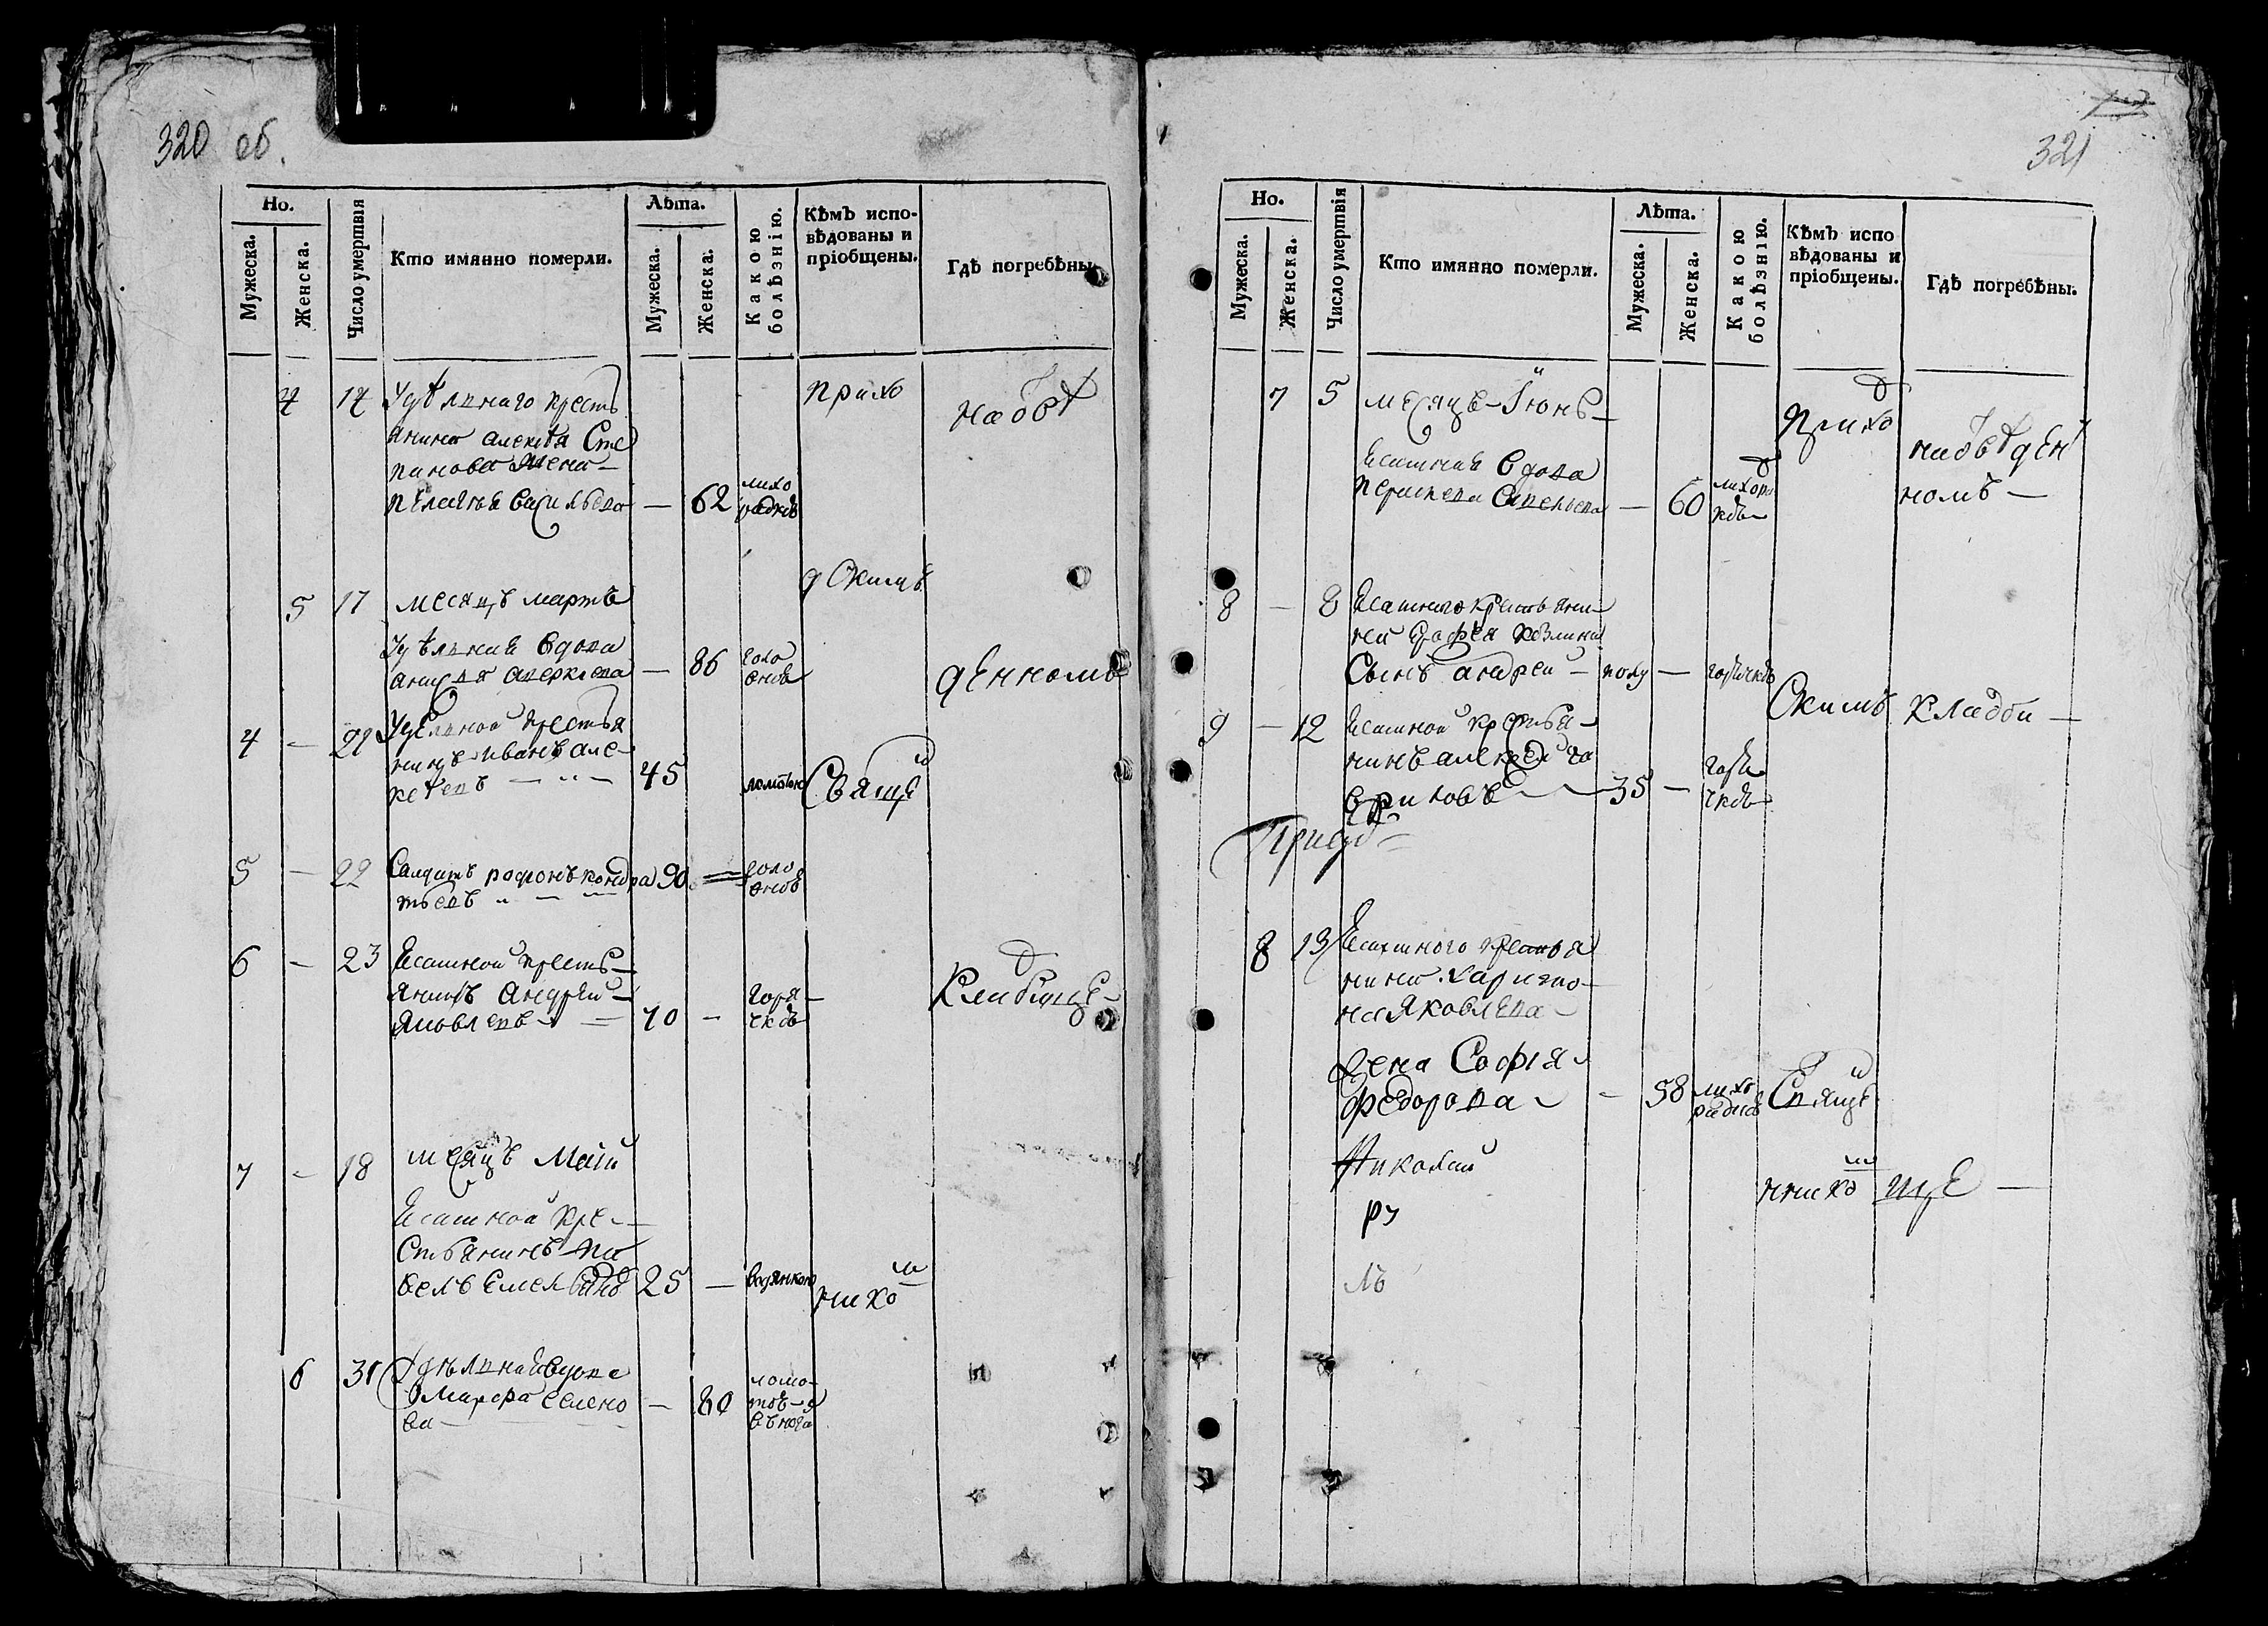 320 об.
Но.
Мужеска.
Женска.
Число умертвія
Кто имянно померли.
Лѣта.
Мужеска.
Женска.
Какою болѣзнію.
Кѣмъ испо-
вѣдованы и
пріобщены.
Гдѣ погребѣны.
4 14 Удѣлнаго кресть
янина алексѣя Сте
панова жена
пелагея васильева — 62 лихо
радкою
прихо
на отвѣ
5 17 месяцъ мартъ
Удѣлная вдова
86
д Скимъ
денномъ
4 — 22 Уделной крестья
нинъ иванъ але
ксѣевъ — 45
Свяще
5 — 22 Салдатъ родионъ кондра 90
тьевъ
6 — 23 Ясашной кресть
янинъ Андрей
яковлевъ — 70 — горя
чкою
Кладбище
7 — 18 месяцъ Маій
Ясашной кре
стьянинъ па
велъ Емельянов 25 — водянкою
нико
6 31 Удѣлная вдова
Марфа семено
ва — 80 ломо
тою
в ногах
321
Но.
Мужеска.
Женска.
Число умертвія
Кто имянно померли.
Лѣта.
Мужеска.
Женска.
Какою болѣзнію.
Кѣмъ испо
вѣдованы и
пріобщены.
Гдѣ погребѣны.
7 5 месяцъ Іюнь
Ясашная вдова
— 60
прихо
на отвѣден
номъ —
8 — 8 Ясашного крестьяни
на
Сынъ андрей — полу — горячкою
Скимъ Кладби —
9 — 12 Ясашной крестья
нинъ алексей га
вриловъ — 35 — горя
чкою
8 13 Ясашного крестья
нина харито
на Яковлева
жена Софія
федорова — 58 лихо
радкою Свяще
Николай
нико ще —
ръ
лъ